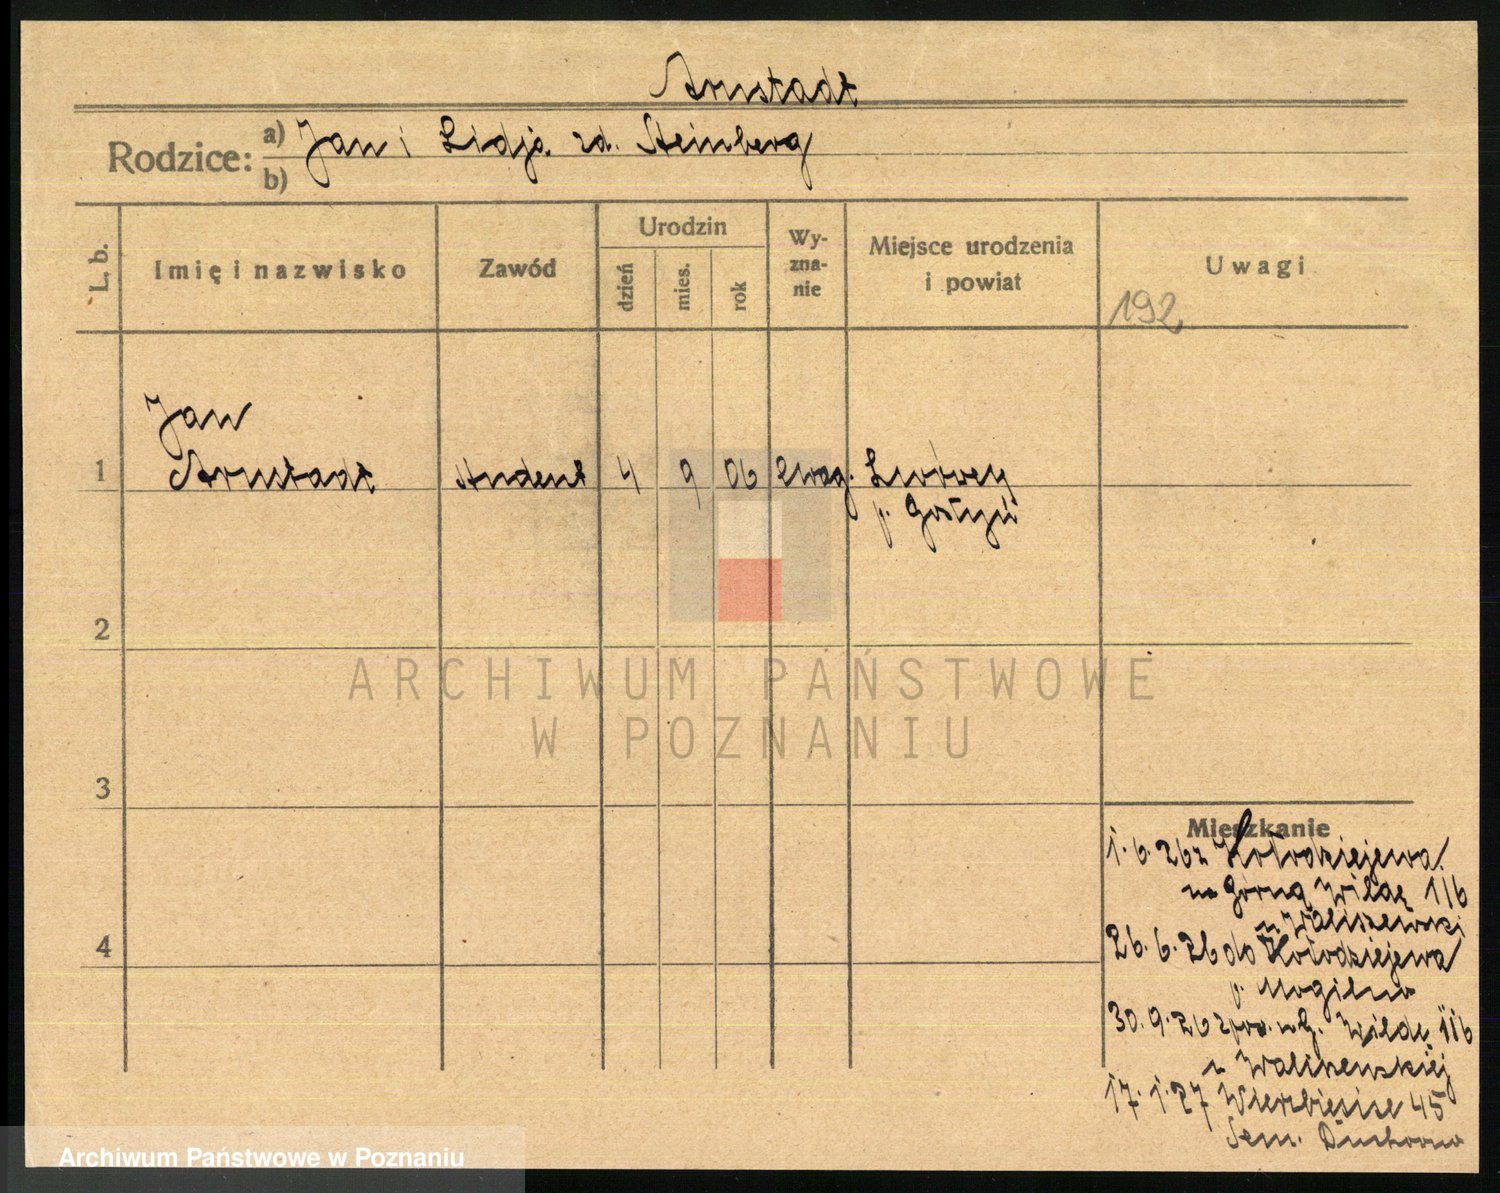 Arnstadt
Rodzice: a) Jan i Lidja zd. Steinberg
b)
L. b.
Imię i nazwisko
Zawód
Urodzin
dzień
mies.
rok
Wy-
zna-
nie
Miejsce urodzenia
i powiat
Uwagi
192
Jan
1 Arnstadt student 4 9 06 Ewag.
p. Gostyń
2
ARCHIWUM PAŃSTWOWE
W POZNANIU
3
4
Mieszkanie
1.6.26 z Kołodziejewa
na Górną Wildę 116
u Waliszewski
26.6.26 do Kołodziejewa
p. Mogilno
30.9.26 G. Wildę 116
u Waliszewskiej
17.1.27 Wierzbięcice 45
Sem. Duchowne
Archiwum Państwowe w Poznaniu